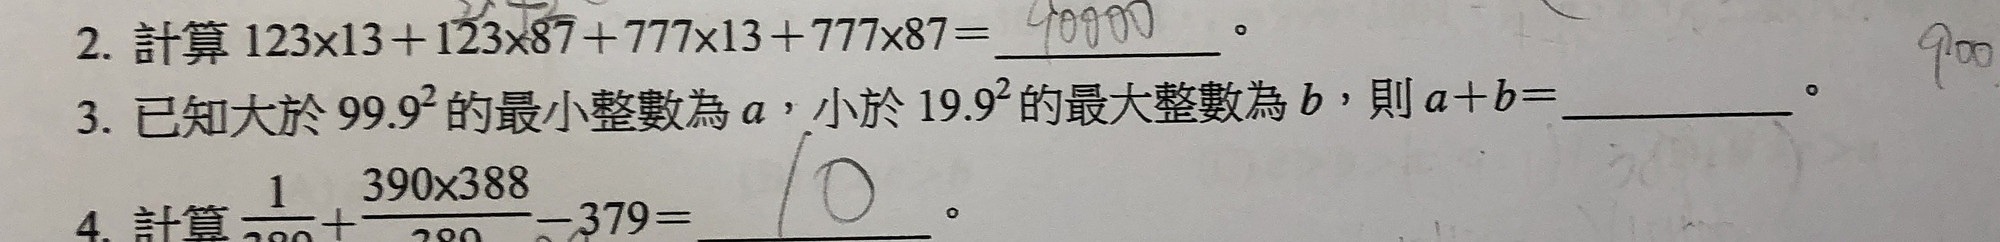 2. 計算 123×13+123×87+777×13+777×87= 90000 。
900
3. 已知大於 99.9² 的最小整數為 a,小於 19.9² 的最大整數為 b,則 a+b= 。
4. 計算 1/389 + 390×388/389 −379= 10 。